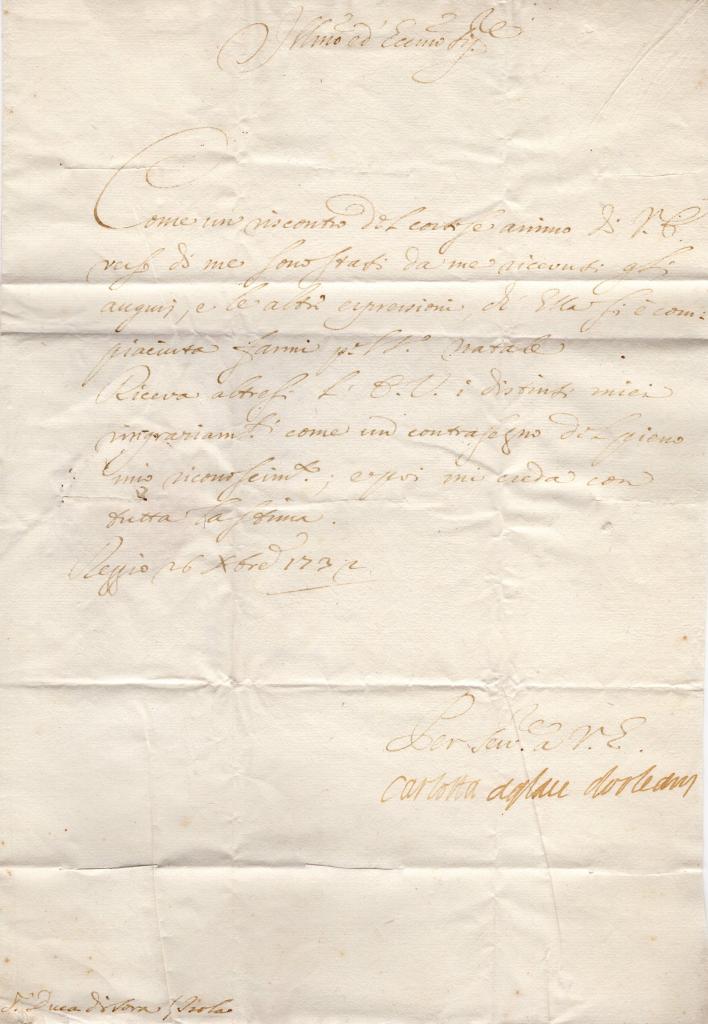 Illmo ed Eccmo Sigre
Come un riscontro del cortese animo di V. E.
verso di me sono stati da me ricevuti gli
augurj, e le altre espressioni, ch' Ella si è com=
piaciuta farmi pr il So. Natale
Riceva altresi l' E. V. i distinti miei
ringraziamti come un contrasegno del pieno
mio riconoscimto; e poi mi creda con
tutta la stima.
Reggio 26 Xbre 1732
Per serv.re a V. E.
Carlotta aglae dorleans
Sr. Duca di Sora